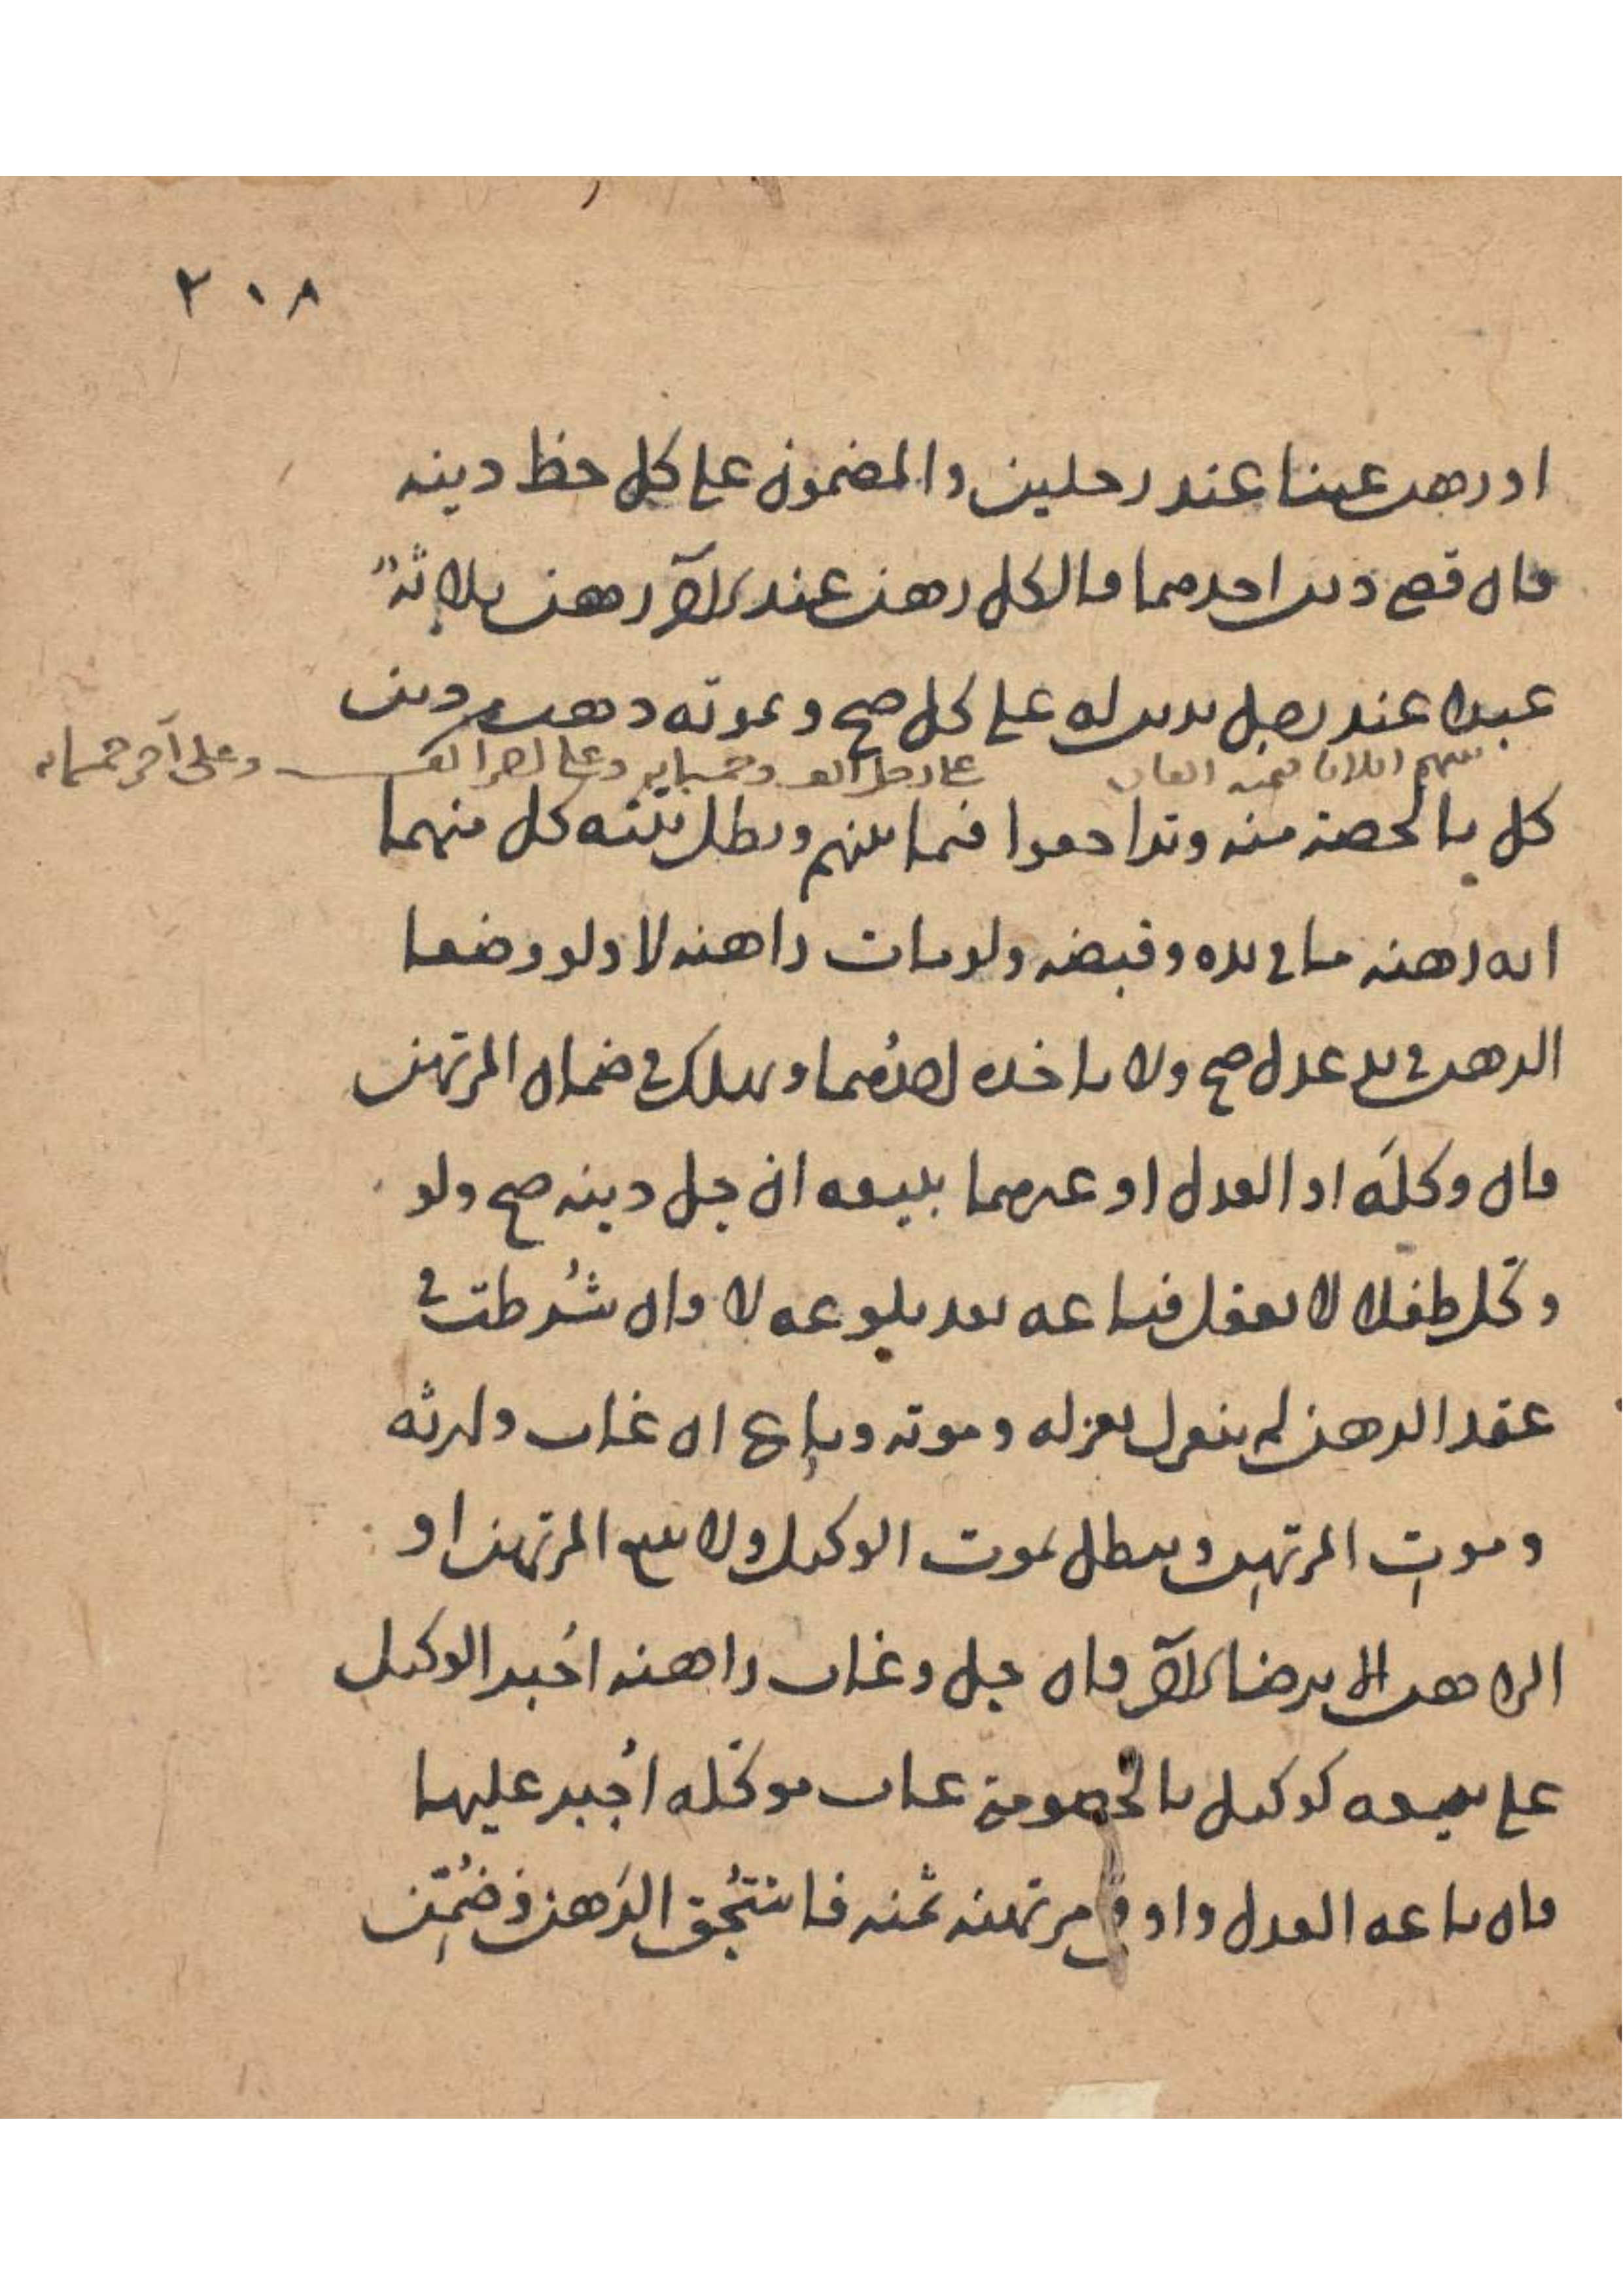 ٢٠٨
او رهن عينا عند رجلين والمضمون على كل حظ دينه
فان قضى دين احدهما فالكل رهن عند الآخر رهن ثلاثة
عبدا عند رجل بدين له على كل صح وبموته ذهب من دين
بينهم اثلاثا قيمته الفان على رجل الف وخمسمايه وعلى آخر الف وعلى آخر خمسمايه
كل بالحصة منه وتراجعوا فيما بينهم وبطل بينة كل منهما
انه رهنه ما في يده وقبضه ولو مات راهنه لا ولو وضعا
الرهن في يد عدل صح ولا ياخذه احدهما ويهلك في ضمان المرتهن
فان وكله او العدل او غيرهما ببيعه ان حل دينه صح ولو
وكل طفلا لا يعقل فباعه بعد بلوغه لا وان شرطت في
عقد الرهن لم ينعزل بعزله وموته وباع ان غاب وارثه
وموت المرتهن ويبطل بموت الوكيل ولا يبيع المرتهن او
الراهن الا برضا الآخر فان حل وغاب راهنه اجبر الوكيل
على بيعه كوكيل بالخصومة غاب موكله اجبر عليها
فان باعه العدل واوفى مرتهنه ثمنه فاستحق الرهن وضمن